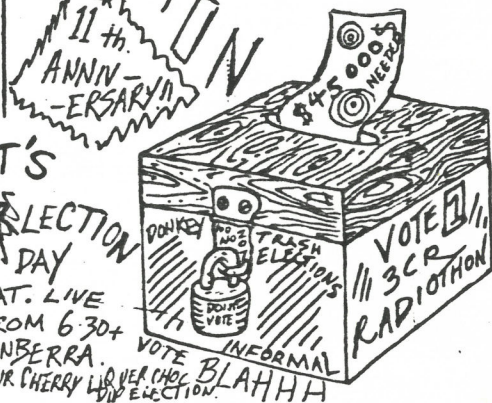 TION
11th.
ANNIV-
-ERSARY!!
$45000$
NEEDED
T'S
ELECTION
DAY
AT. LIVE
ROM 6.30+
NBERRA.
UR CHERRY LIQUER CHOC
DIP ELECTION.
DONKEY
VOTE
NO
NO
TRASH
ELECTIONS
DON'T
VOTE
INFORMAL
BLAHHH
VOTE 1
3CR
RADIOTHON